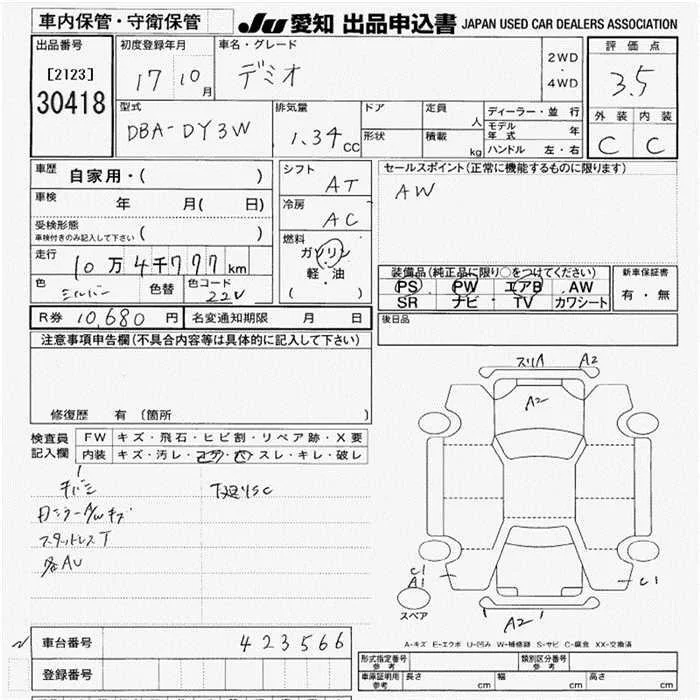 車内保管・守衛保管
JU 愛知 出品申込書 JAPAN USED CAR DEALERS ASSOCIATION
出品番号 初度登録年月 車名・グレード 2WD ・ 4WD 評価点
[2123] 17 10月 デミオ 3.5
30418
型式 排気量 ドア 定員 人 ディーラー・並 行 外装 内装
モデル年式 年
DBA-DY3W 1.34cc 形状 積載 kg ハンドル 左・右 C C
車歴 自家用・( ) シフト AT セールスポイント(正常に機能するものに限ります)
車検 年 月( 日) 冷房 AC AW
受検形態
車検付きのみ記入して下さい ( )
燃料 ガソリン
軽・油
( )
走行 10万4千777km
装備品(純正品に限り○をつけてください) 新車保証書
色 シルバー 色替 色コード 22V
PS PW エアB AW 有・無
SR ナビ TV カワシート
R券 10,680円 名変通知期限 月 日 後日品
注意事項申告欄(不具合内容等は具体的に記入して下さい)
修復歴 有 (箇所 )
検査員記入欄 FW キズ・飛石・ヒビ割・リペア跡・X要
内装 キズ・汚レ・コゲ・穴・スレ・キレ・破レ
下廻りSC
スタッドレスT
各AU
スリA A2
A2
C1
A1
C1
A2
スペア
A-キズ E-エクボ U-凹み W-補修跡 S-サビ C-腐食 XX-交換済
車台番号 423566
登録番号
形式指定番号 参考 類別区分番号 参考
車庫証明用 参考 長さ cm 幅 cm 高さ cm